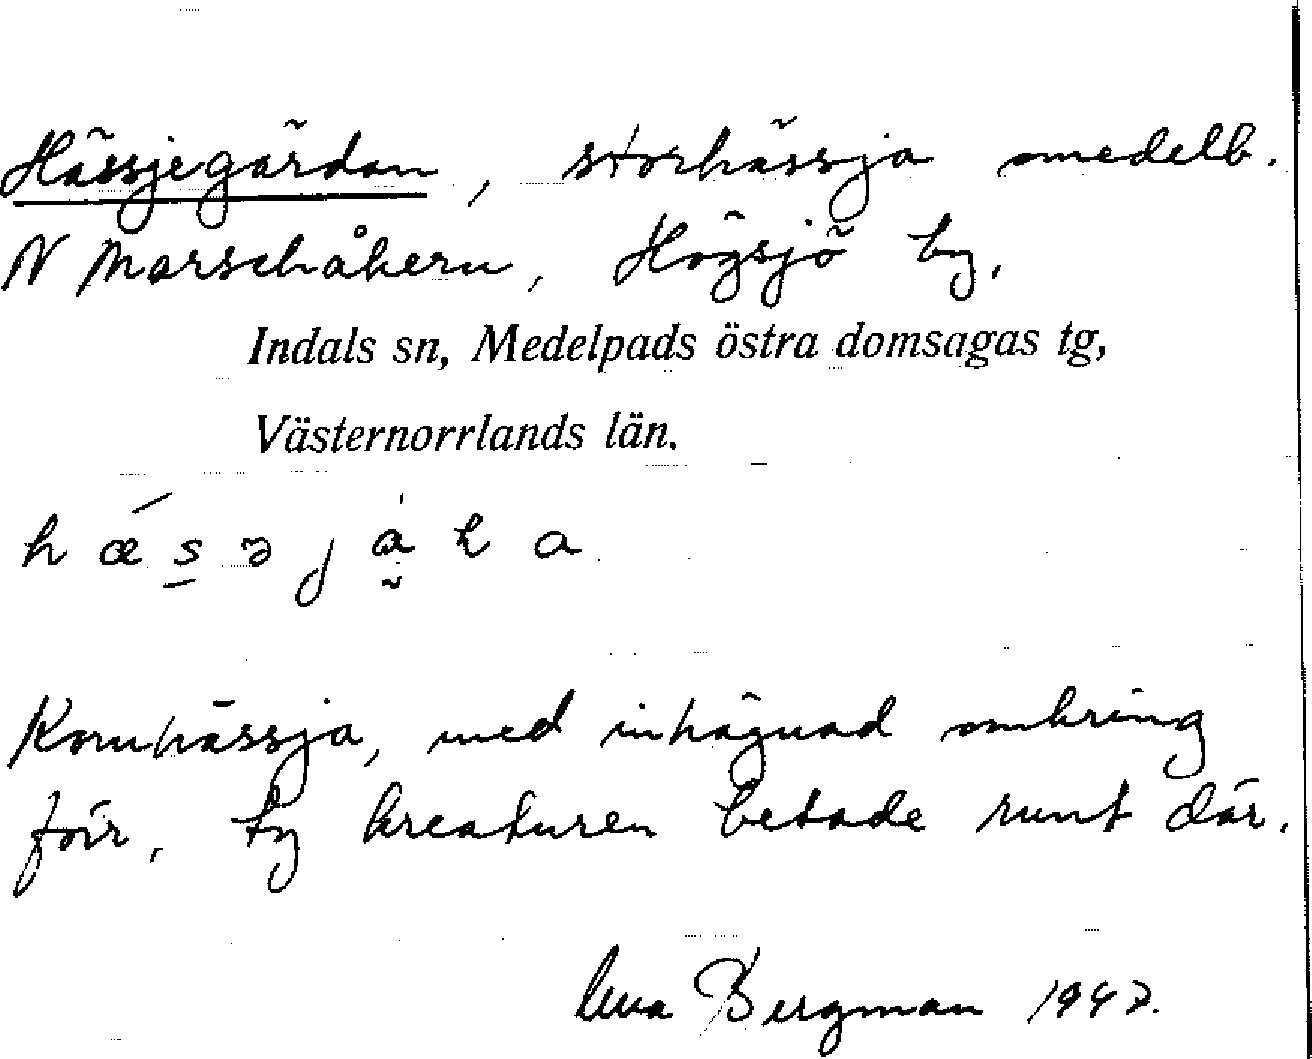 Hässjegärdan, storhässja omedelb.
N Marschåkern, Högsjö by,
Indals sn, Medelpads östra domsagas tg,
Västernorrlands län.
Kornhässja, med inhägnad omkring
förr, ty kreaturen betade runt där.
Bergman 1942.